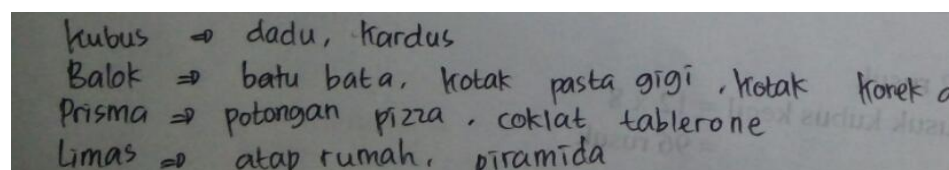 kubus ⇒ dadu, kardus
Balok ⇒ batu bata, kotak pasta gigi, kotak korek
Prisma ⇒ potongan pizza, coklat tablerone
Limas ⇒ atap rumah, piramida